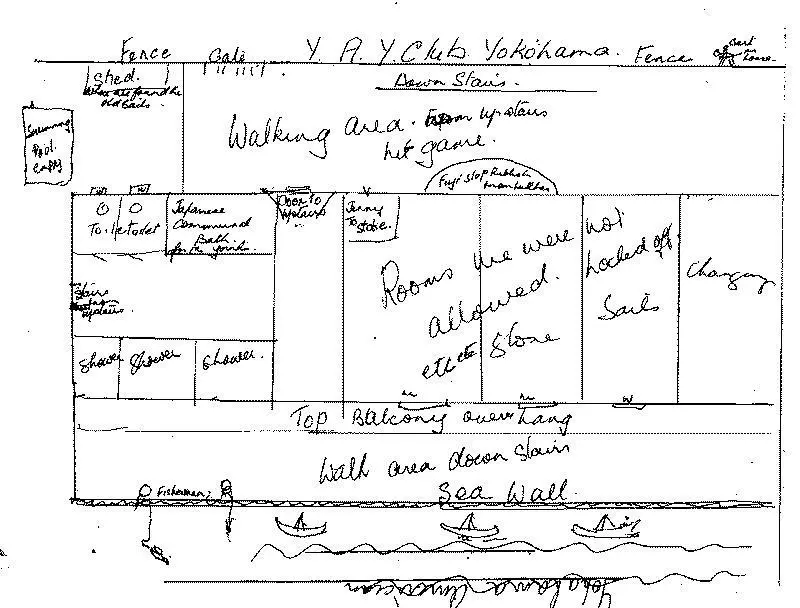 Fence Gate Y. A. Y Club Yokohama. Fence
Down Stairs.
Shed.
where are found the
old sails
Walking area. upstairs
game.
Swimming
Pool
empty
Fuji
Door To
upstairs
Japanese
Communal
Bath
Toilet Toilet
To
Store.
Rooms we were not
allowed. locked off.
etc etc Store Sails
Changing
Stairs
from
upstairs.
Shower Shower Shower.
Top Balcony over hang
Walk area down stairs
Fishermen;
Sea Wall.
Yokohama